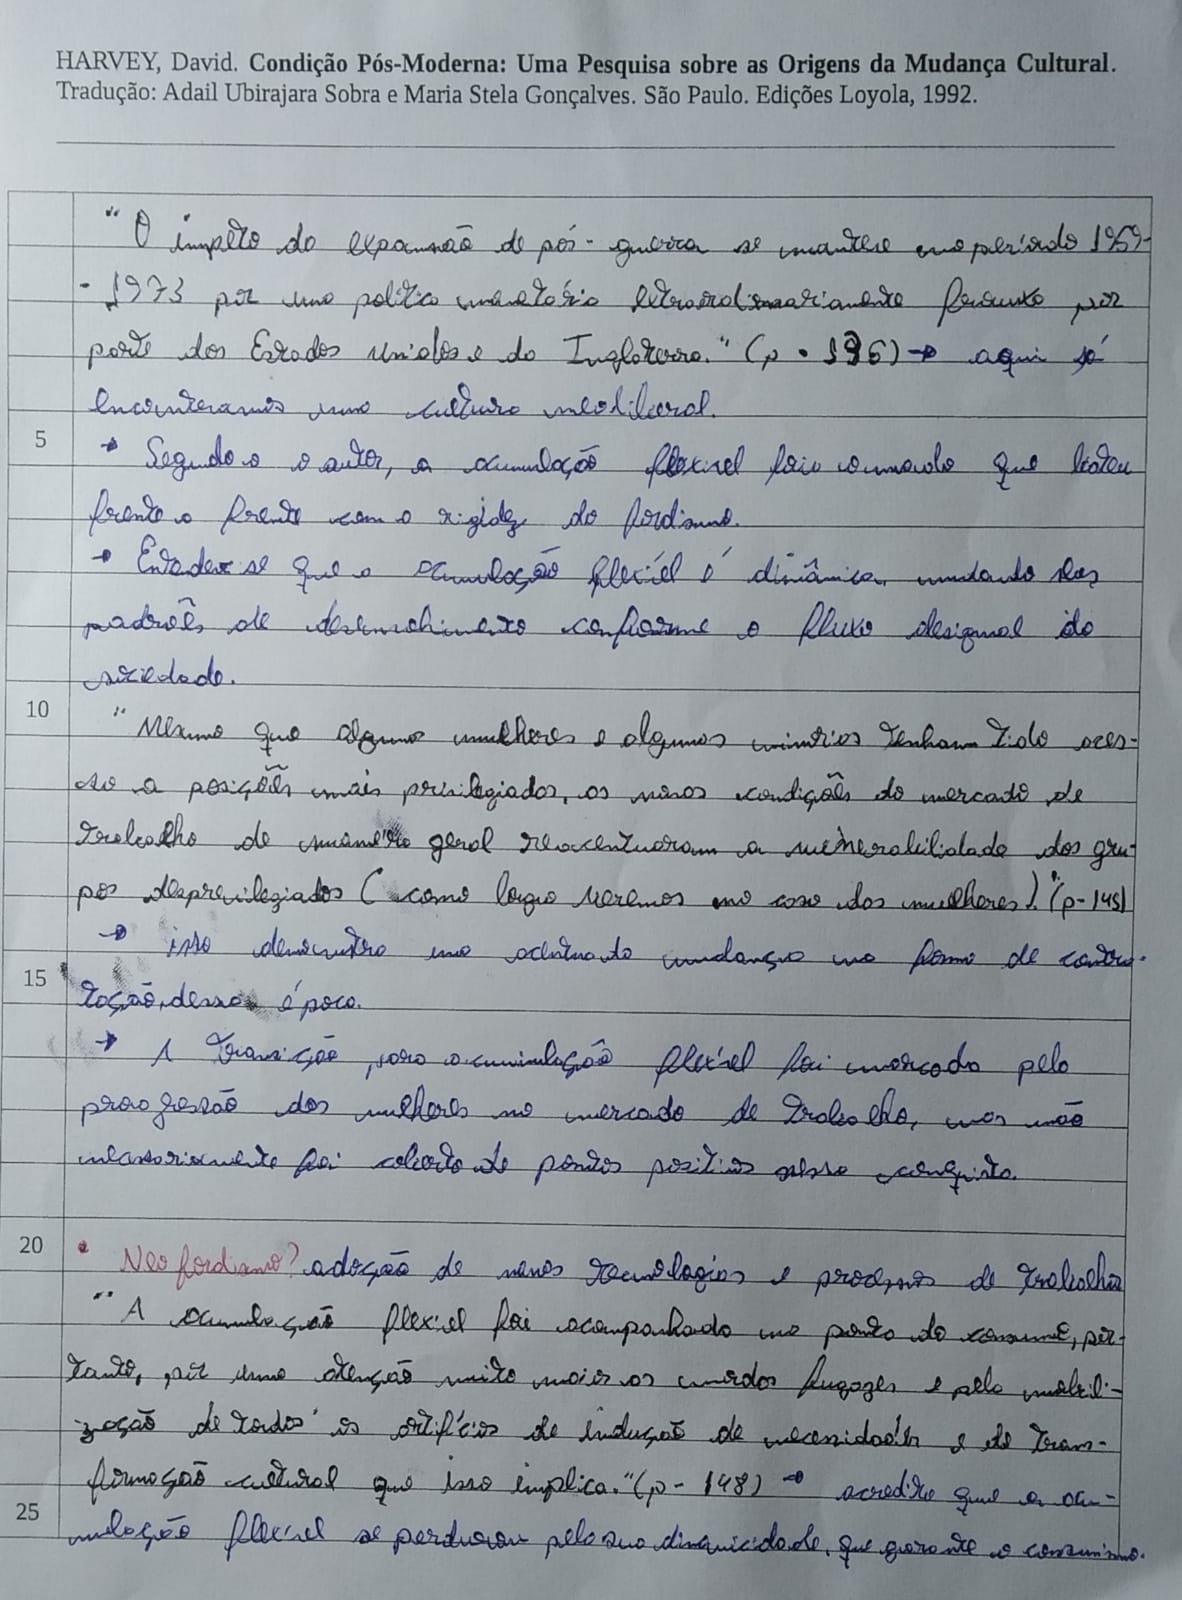 HARVEY, David. Condição Pós-Moderna: Uma Pesquisa sobre as Origens da Mudança Cultural.
Tradução: Adail Ubirajara Sobra e Maria Stela Gonçalves. São Paulo. Edições Loyola, 1992.
"O impeto da expansão de pós-guerra se manteve no período 1969-
- 1973 por uma politica monetária extraordinariamente por
parte dos Estados Unidos e da Inglaterra." (p. 136) → aqui já
encontramos uma cultura neoliberal.
5 → Segundo o autor, a acumulação flexivel foi marcada que bateu
frente a frente com a rigidez do fordismo.
→ Entender se que a acumulação flexíel é dinâmica, mudando
padrões de desenvolvimento conforme o fluxo desigual da
sociedade.
10 "Mesmo que algumas mulheres e algumas minorias tenham tido aces-
so a posições mais privilegiadas, as novas condições do mercado de
trabalho de maneira geral reacentuaram a vulnerabilidade dos gru-
pos desprevilegiados (como logo veremos no caso das mulheres)." (p-145)
→ isso demonstra uma acentuada mudança na forma de contra-
15 tação, dessa época.
→ A transição para acumulação flexível foi marcada pela
progressão das mulheres no mercado de trabalho, mas não
foi coberto de pontos positivos nessa conquista.
20 • Neofordismo? adoção de novas tecnologias e processos de trabalho
"A acumulação flexível foi acompanhada na ponta do consumo, por-
tanto, por uma atenção muito maior as modas fugazes e pela mobili-
zação de todos os artifícios de indução de necessidades e de trans-
formação cultural que isso implica." (p- 148) → acredito que a acu-
25 mulação flexível se perdurou pela sua, que garante o consumismo.